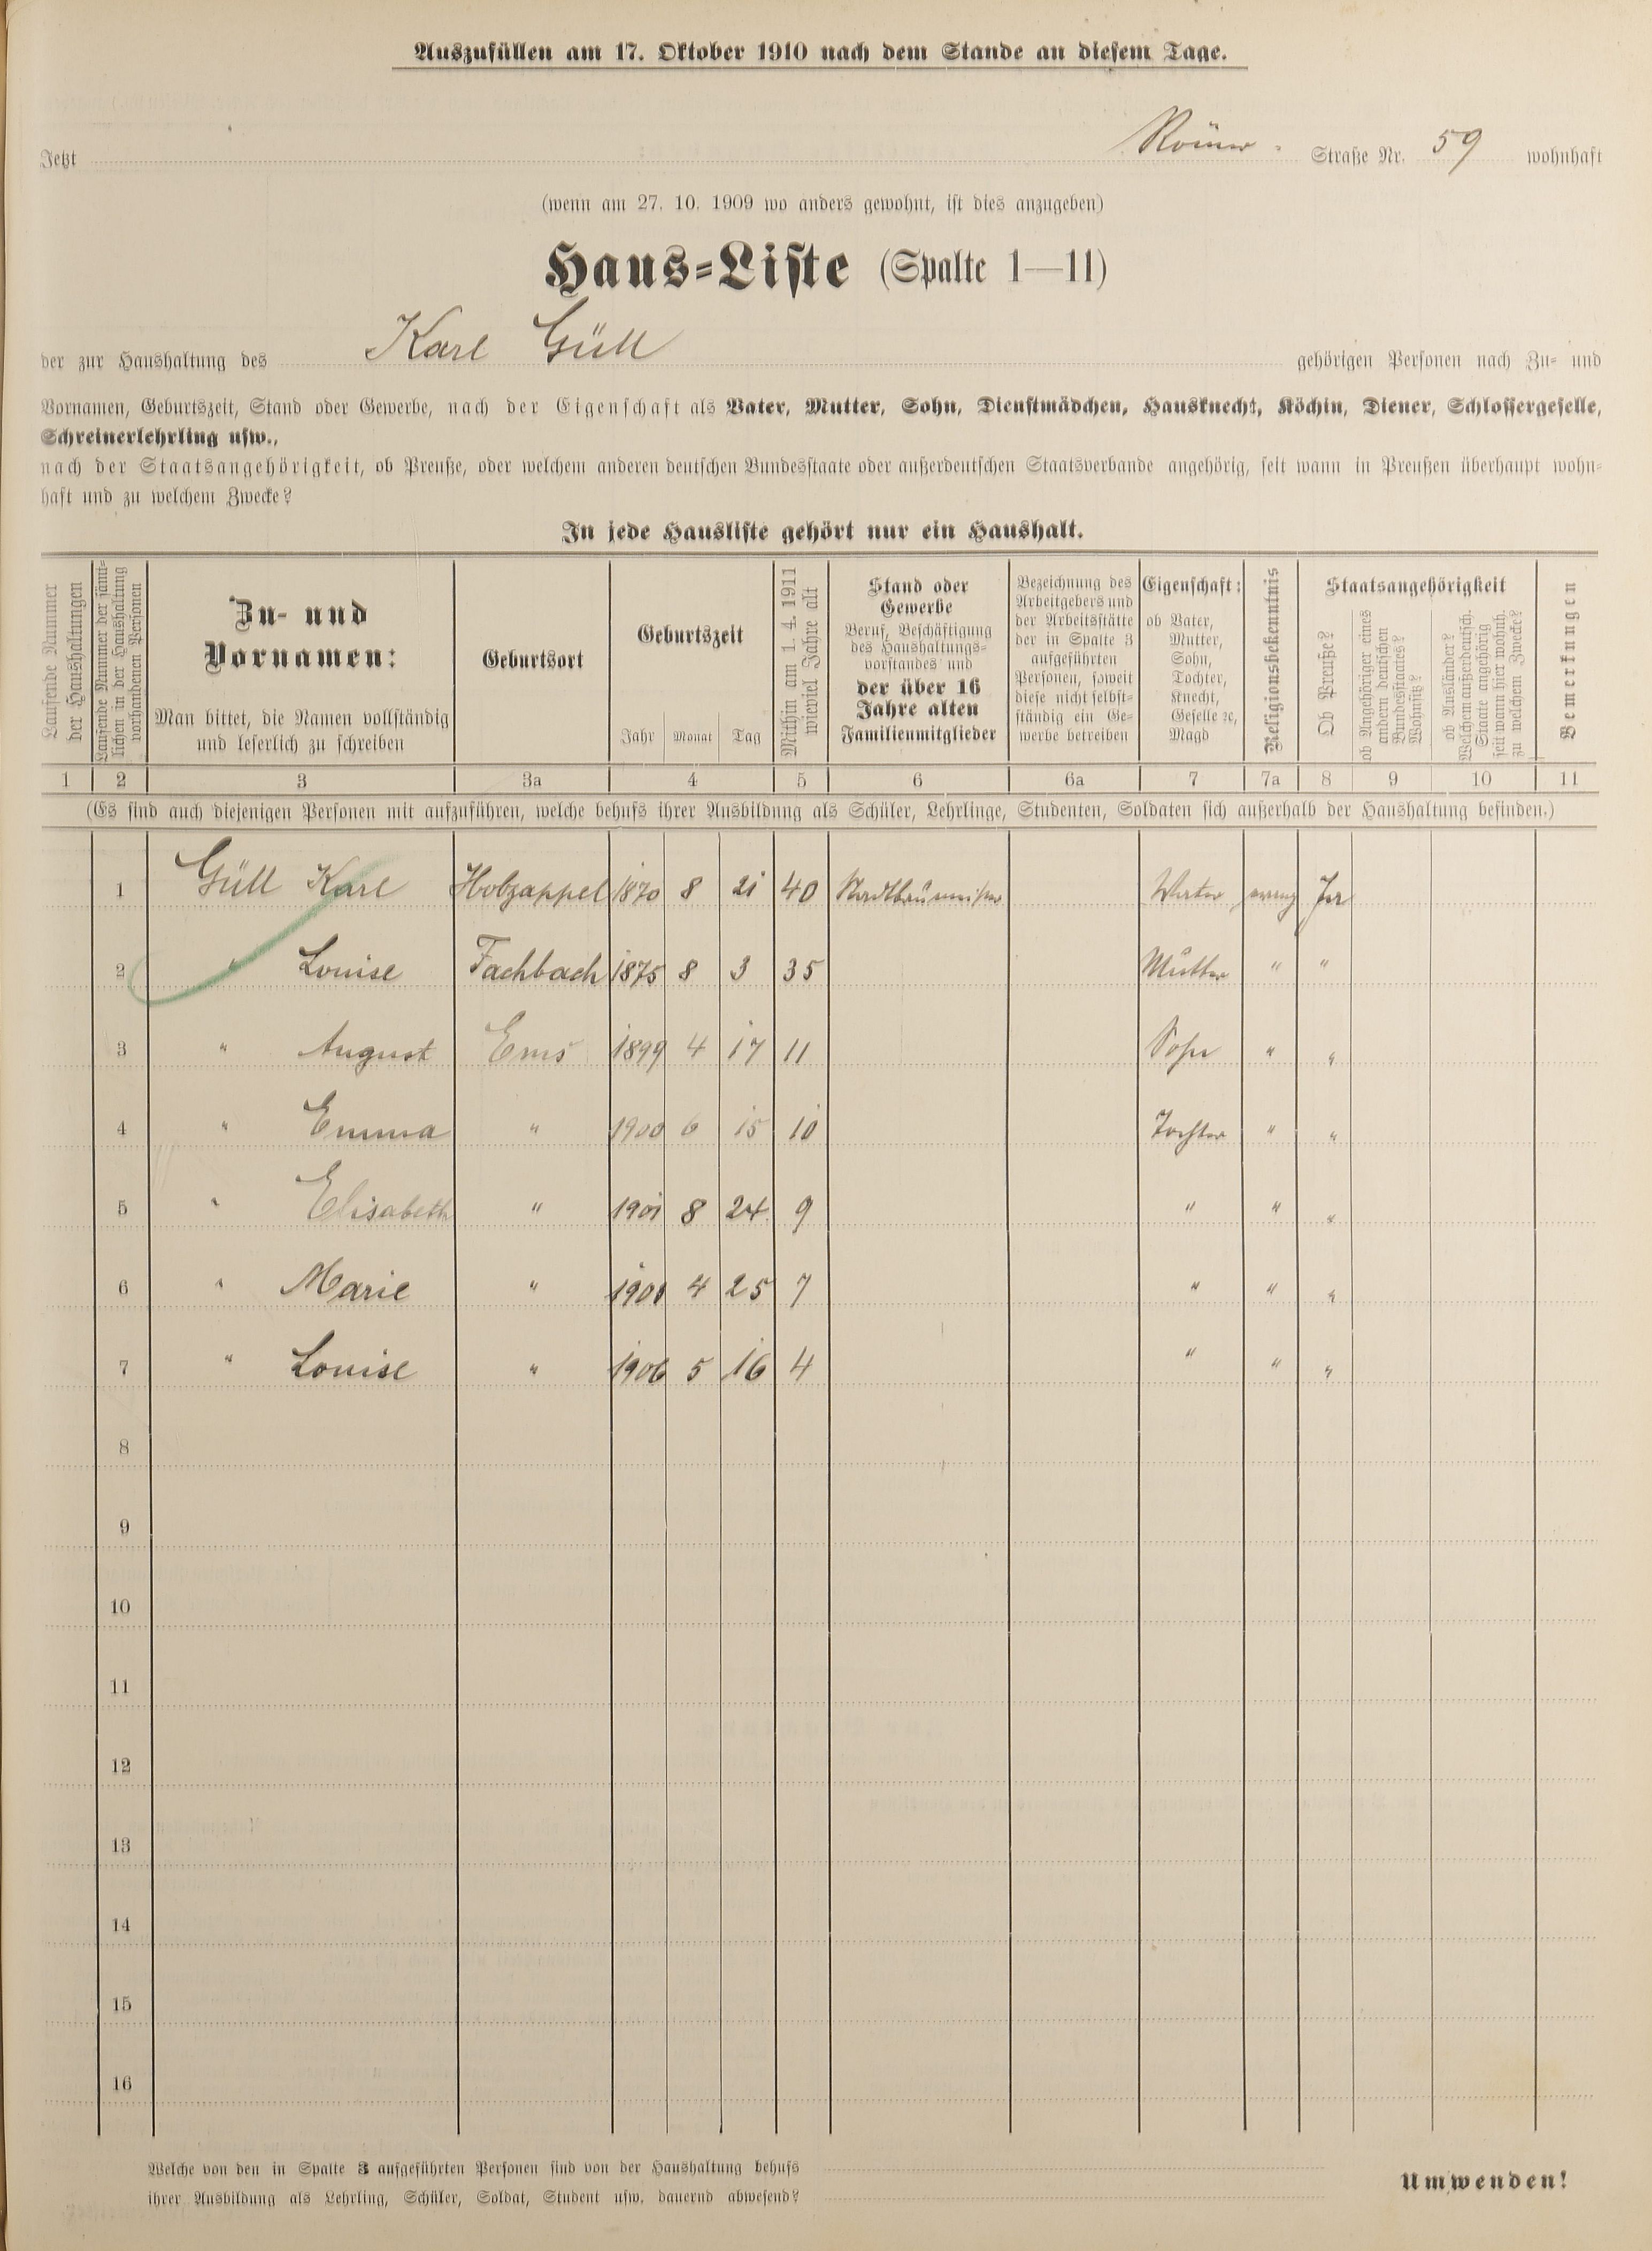 Auszufüllen am 17. Oktober 1910 nach dem Stande an diesem Tage.
Jetzt Römer- Straße Nr. 59 wohnhaft
(wenn am 27. 10. 1909 wo anders gewohnt, ist dies anzugeben)
Haus-Liste (Spalte 1—11)
der zur Haushaltung des Karl Güll gehörigen Personen nach Zu- und
Vornamen, Geburtszeit, Stand oder Gewerbe, nach der Eigenschaft als Vater, Mutter, Sohn, Dienstmädchen, Hausknecht, Köchin, Diener, Schlossergeselle,
Schreinerlehrling usw.,
nach der Staatsangehörigkeit, ob Preuße, oder welchem anderen deutschen Bundesstaate oder außerdeutschen Staatsverbande angehörig, seit wann in Preußen überhaupt wohn-
haft und zu welchem Zwecke?
In jede Hausliste gehört nur ein Haushalt.
Laufende Nummer
der Haushaltungen
Laufende Nummer der sämt-
lichen in der Haushaltung
vorhandenen Personen
Zu- und
Vornamen:
Man bittet, die Namen vollständig
und leserlich zu schreiben
Geburtsort
Geburtszeit
Jahr Monat Tag
Mithin am 1. 4. 1911
wieviel Jahre alt
Stand oder
Gewerbe
Beruf, Beschäftigung
des Haushaltungs-
vorstandes und
der über 16
Jahre alten
Familienmitglieder
Bezeichnung des
Arbeitgebers und
der Arbeitsstätte
der in Spalte 3
aufgeführten
Personen, soweit
diese nicht selbst-
ständig ein Ge-
werbe betreiben
Eigenschaft:
ob Vater,
Mutter,
Sohn,
Tochter,
Knecht,
Geselle ꝛc,
Magd
Religionsbekenntnis
Staatsangehörigkeit
Ob Preuße?
ob Angehöriger eines
andern deutschen
Bundesstaates?
Wohnsitz?
ob Ausländer?
Welchem außerdeutsch.
Staate angehörig
seit wann hier wohnh.
zu welchem Zwecke?
Bemerkungen
1 2 3 3a 4 5 6 6a 7 7a 8 9 10 11
(Es sind auch diejenigen Personen mit aufzuführen, welche behufs ihrer Ausbildung als Schüler, Lehrlinge, Studenten, Soldaten sich außerhalb der Haushaltung befinden.)
1 Güll Karl Holzappel 1870 8 21 40 Stadtbaumeister Vater evang Ja
2 " Louise Fachbach 1875 8 3 35 Mutter " "
3 " August Ems 1899 4 17 11 Sohn " "
4 " Emma " 1900 6 15 10 Tochter " "
5 " Elisabeth " 1901 8 24 9 " " "
6 " Marie " 4 25 7 " " "
7 " Louise " 1906 5 16 4 " " "
8
9
10
11
12
13
14
15
16
Welche von den in Spalte 3 aufgeführten Personen sind von der Haushaltung behufs
ihrer Ausbildung als Lehrling, Schüler, Soldat, Student usw. dauernd abwesend?
Umwenden!